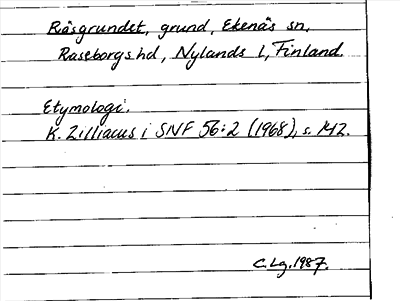 Råsgrundet, grund, Ekenäs sn,
Raseborgs hd, Nylands l, Finland.
Etymologi.
K. Zilliacus i SNF 56:2 (1968), s. 142.
C. Lg. 1987.